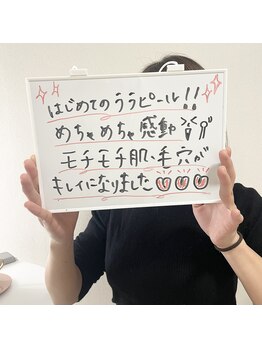 はじめてのララピール!!
めちゃめちゃ感動
モチモチ肌、毛穴が
キレイになりました♡♡♡